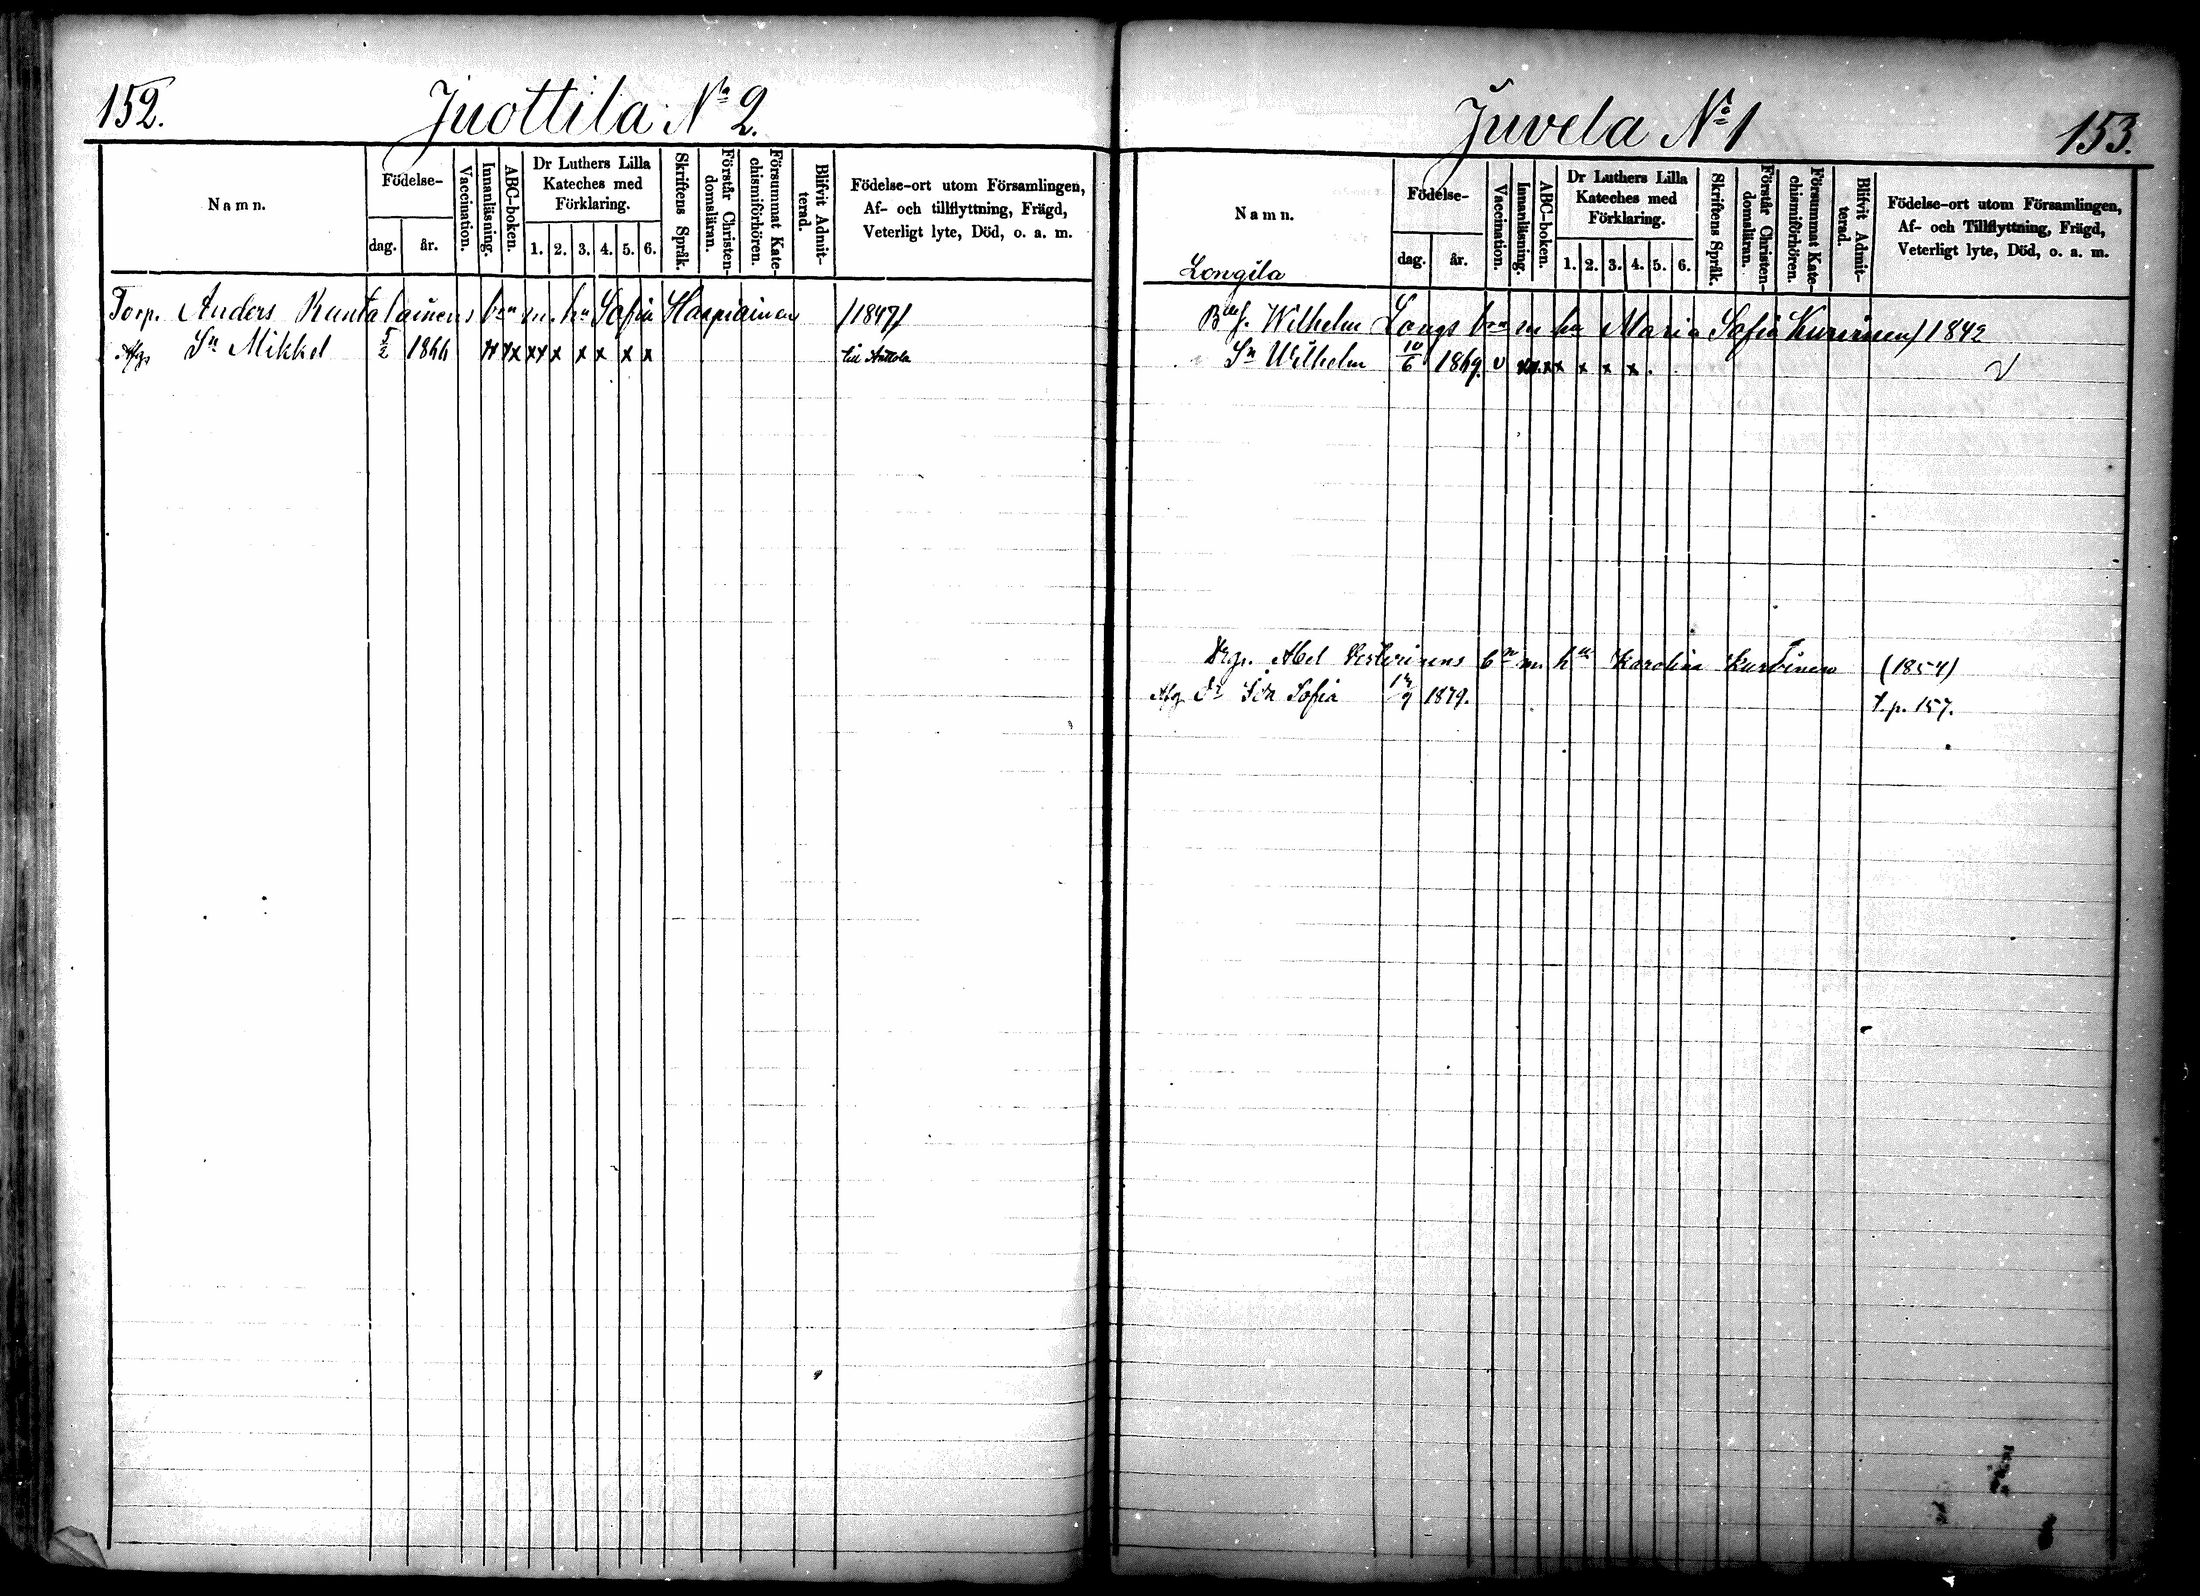 152.
Juottila No 2.
Namn.
Födelse-
dag. år.
Vaccination.
Innanläsning.
ABC-boken.
Dr Luthers Lilla Kateches med Förklaring.
1. 2. 3. 4. 5. 6.
Skriftens Språk.
Förstår Christendomsläran.
Försummat Katechismiförhören.
Blifvit Admitterad.
Födelse-ort utom Församlingen,
Af- och tillflyttning, Frägd,
Veterligt lyte, Död, o. a. m.
Torp. Anders Rantalainens bn m. hu Sofia Haapiainen /1847/
Afg. Sn Mikkel 5/2 1866 xx xx xx x x x x x till
Juvela No 1
153.
Namn.
Longila
Födelse-
dag. år.
Vaccination.
Innanläsning.
ABC-boken.
Dr Luthers Lilla
Kateches med
Förklaring.
1. 2. 3. 4. 5. 6.
Skriftens Språk.
Förstår Christendomsläran.
Försummat Katechismiförhören.
Blifvit Admitterad.
Födelse-ort utom Församlingen,
Af- och Tillflyttning, Frägd,
Veterligt lyte, Död, o. a. m.
Wilhelm Longs bn m hu Maria Sofia Kurvinen /1842
Sn Wilhelm 10/6 1869. v xx. xx x x x x .
Drg. Abel Vesterinens bn m. hu Karolina Kurvinen (1854)
Afg Dr Ida Sofia 1879. t. p. 157.